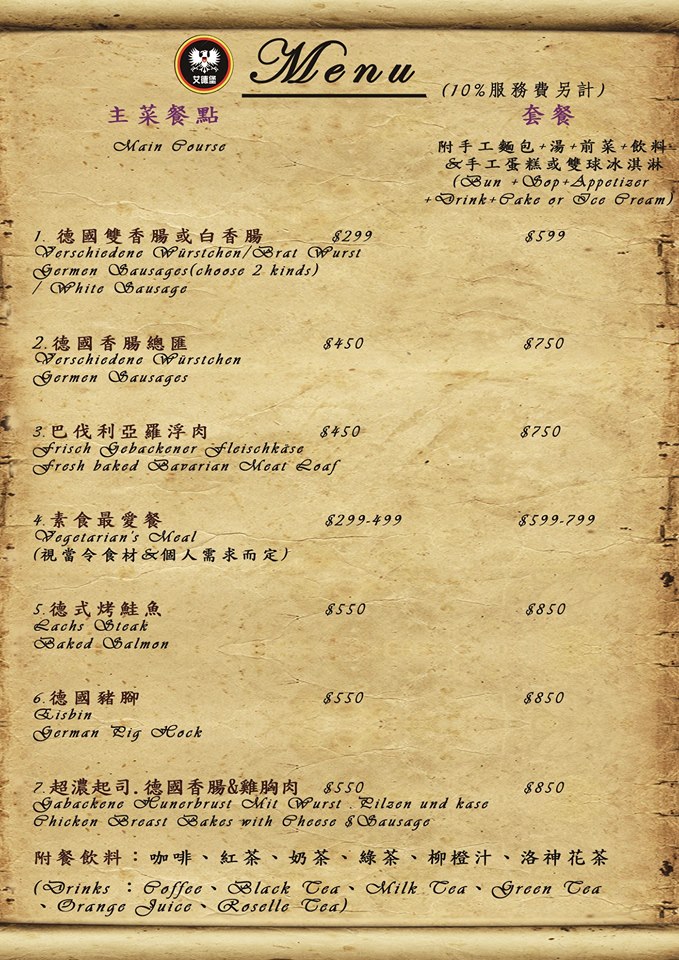 艾德堡
Menu
(10%服務費另計)
主菜餐點
套餐
Main Course
附手工麵包+湯+前菜+飲料
&手工蛋糕或雙球冰淇淋
(Bun +Sop+Appetizer
+Drink+Cake or Ice Cream)
1. 德國雙香腸或白香腸 $299 $599
Verschiedene Würstchen/Brat Wurst
Germen Sausages(choose 2 kinds)
/ White Sausage
2.德國香腸總匯 $450 $750
Verschiedene Würstchen
Germen Sausages
3.巴伐利亞羅浮肉 $450 $750
Frisch Gebackener Fleischkäse
Fresh baked Bavarian Meat Loaf
4.素食最愛餐 $299-499 $599-799
Vegetarian's Meal
(視當令食材&個人需求而定)
5.德式烤鮭魚 $550 $850
Lachs Steak
Baked Salmon
6.德國豬腳 $550 $850
Eisbin
German Pig Hock
7.超濃起司.德國香腸&雞胸肉 $550 $850
Gabackene Hunerbrust Mit Wurst .Pilzen und kase
Chicken Breast Bakes with Cheese &Sausage
附餐飲料：咖啡、紅茶、奶茶、綠茶、柳橙汁、洛神花茶
(Drinks ：Coffee、Black Tea、Milk Tea、Green Tea
、Orange Juice、Roselle Tea)